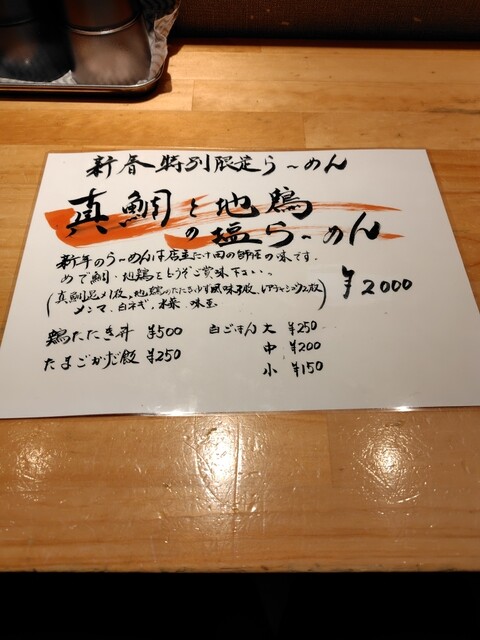 新春特別限定らーめん
真鯛と地鶏
の塩らーめん
新年のらーめんは店主竹田の師匠の味です。
めで鯛・地鶏をどうぞご賞味下さい。
(真鯛昆〆1枚、地鶏のたたきゆず風味3枚、レアチャーシュー2枚
メンマ、白ネギ、水菜、味玉)
¥2000
鶏たたき丼 ¥500
たまごかけ飯 ¥250
白ごはん 大 ¥250
中 ¥200
小 ¥150